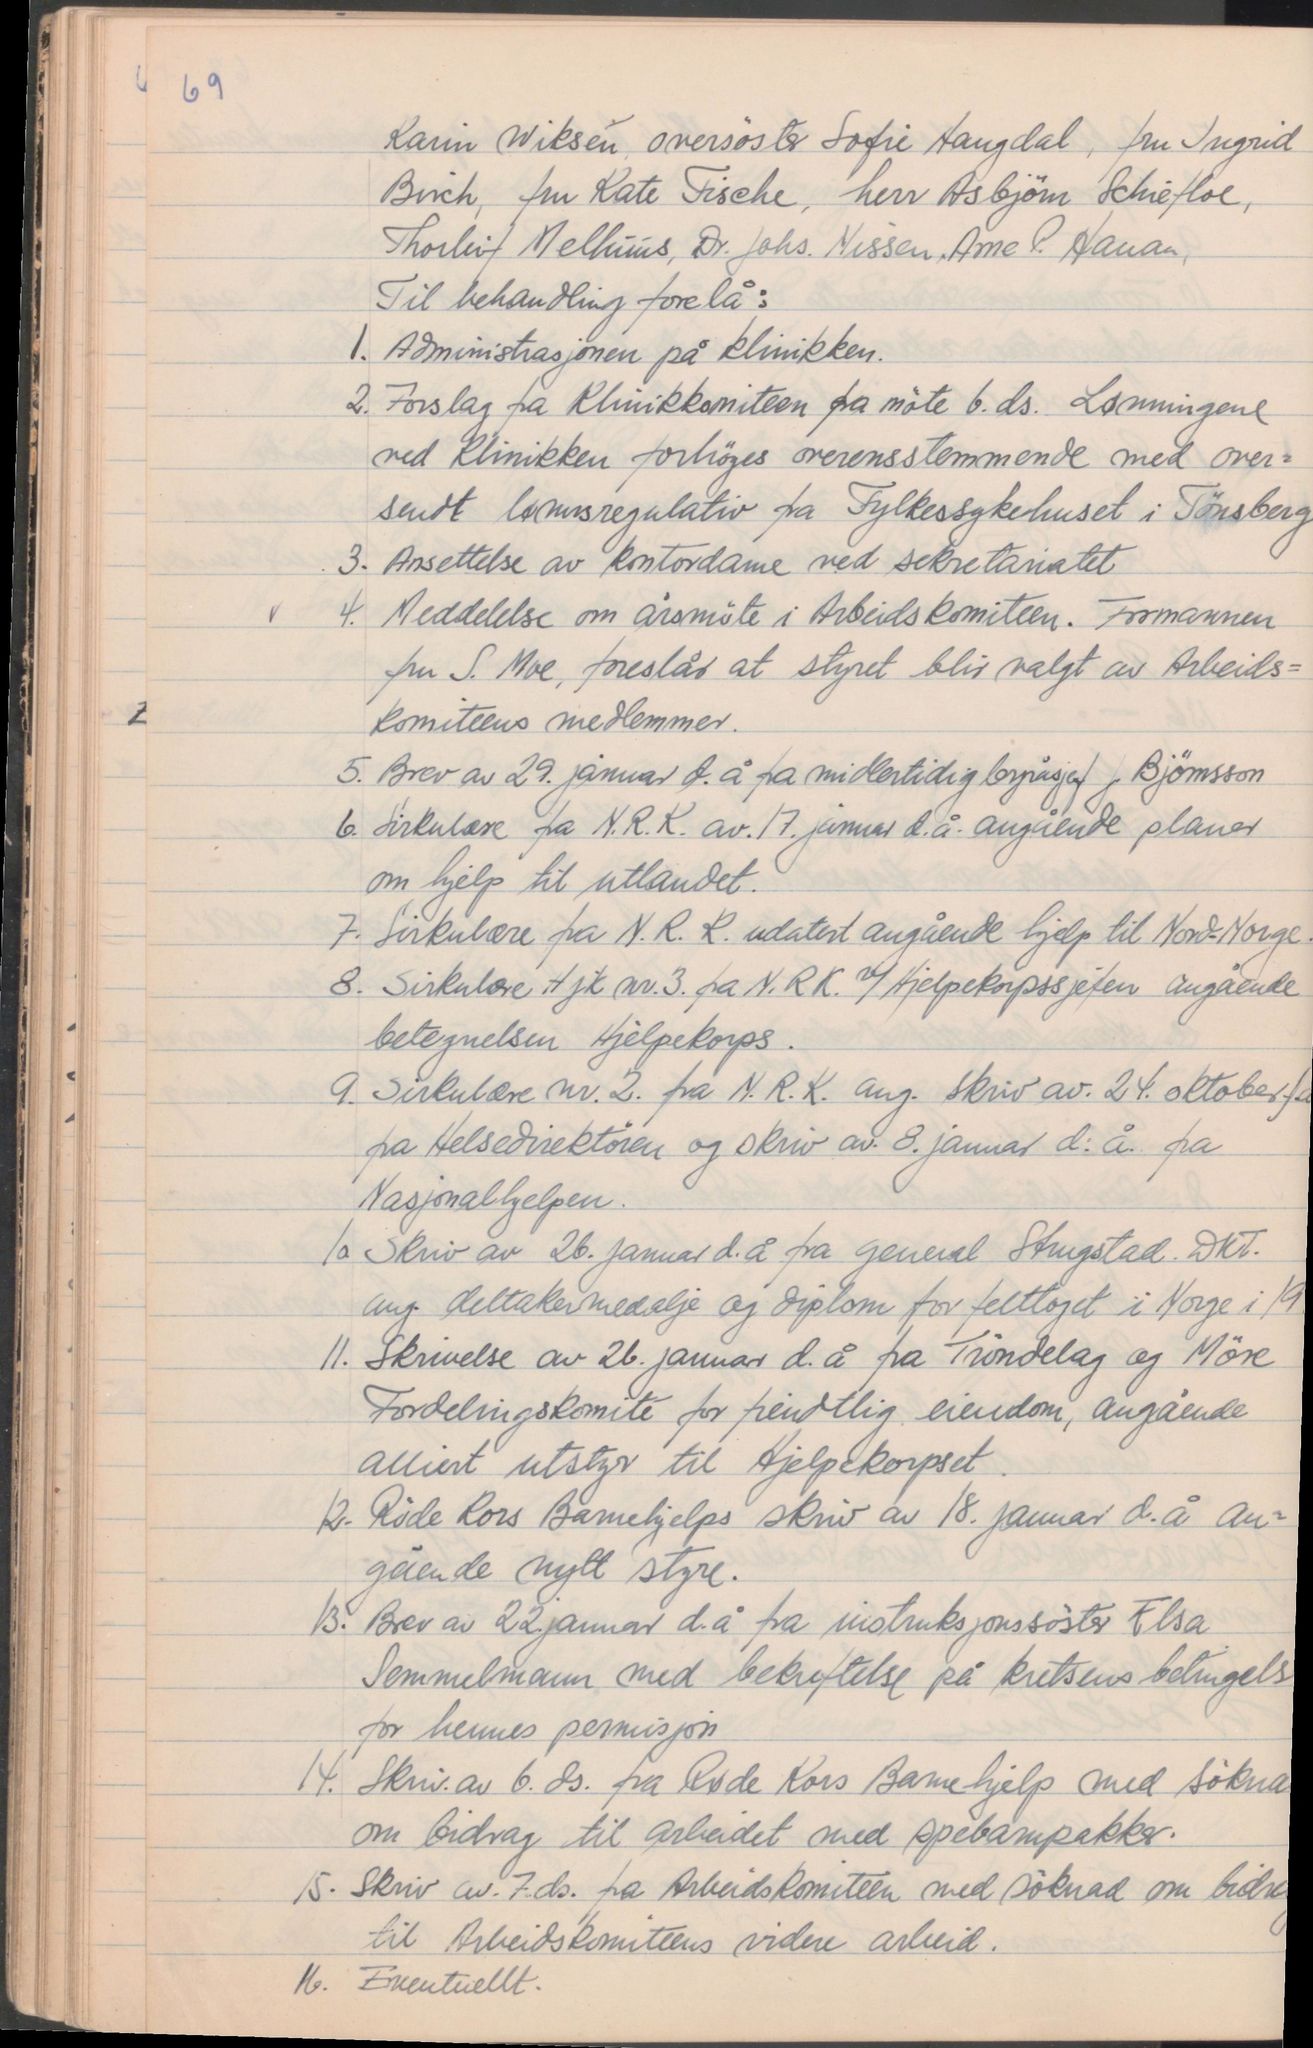 69
Karin Wiksén, oversöster Sofie Haugdal, fru Ingrid
Birch, fru Kate Fische, herr Asbjörn Schiefloe,
Thorleif Melhuus, Dr. Johs. Nissen, Arne P. Hanan,
Til behandling forelå:
1. Administrasjonen på klinikken.
2. Forslag fra Klinikkomiteen fra möte 6. ds. Lønningene
ved Klinikken forhöges overensstemmende med over=
sendt lønnsregulativ fra Fylkessykehuset i Tönsberg
3. Ansettelse av kontordame ved sekretariatet
v 4. Meddelelse om årsmöte i Arbeidskomiteen. Formannen
fru S. Moe, foreslår at styret blir valgt av Arbeids=
komiteens medlemmer.
5. Brev av 29. januar d. å fra midlertidig korpssjef J. Björnsson
6. Sirkulære fra N.R.K. av. 17. januar d.å. angående planer
om hjelp til utlandet.
7. Sirkulære fra N.R.K. udatert angående hjelp til Nord-Norge.
8. Sirkulære Hjk nr. 3. fra N.R.K. v/ Hjelpekorpssjefen angående
betegnelsen Hjelpekorps.
9. Sirkulære nr. 2. fra N.R.K. ang. skriv av. 24. oktober f.å
fra Helsedirektören og skriv av. 8. januar d. å. fra
Nasjonalhjelpen.
10 Skriv av 26. januar d.å fra general Strugstad. DKT.
ang. deltakermedalje og diplom for felttoget i Norge i 19
11. Skrivelse av 26. januar d.å fra Tröndelag og Möre
Fordelingskomité for fiendtlig eiendom, angående
alliert utstyr til Hjelpekorpset.
12. Röde Kors Barnehjelps skriv av 18. januar d.å an=
gående nytt styre.
13. Brev av 22. januar d.å fra instruksjonssöster Elsa
Semmelmann med bekreftelse på kretsens betingels
for hennes permisjon
14. Skriv. av 6. ds. fra Røde Kors Barnehjelp med sökna
om bidrag til arbeidet med spebarnpakker.
15. Skriv av. 7. ds. fra Arbeidskomiteen med söknad om bidrag
til Arbeidskomiteens videre arbeid.
16. Eventuellt.